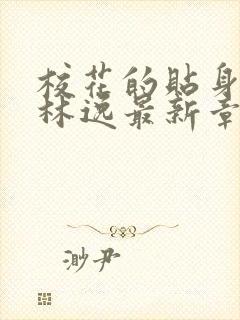 校花的贴身
林逸最新章
渺尹